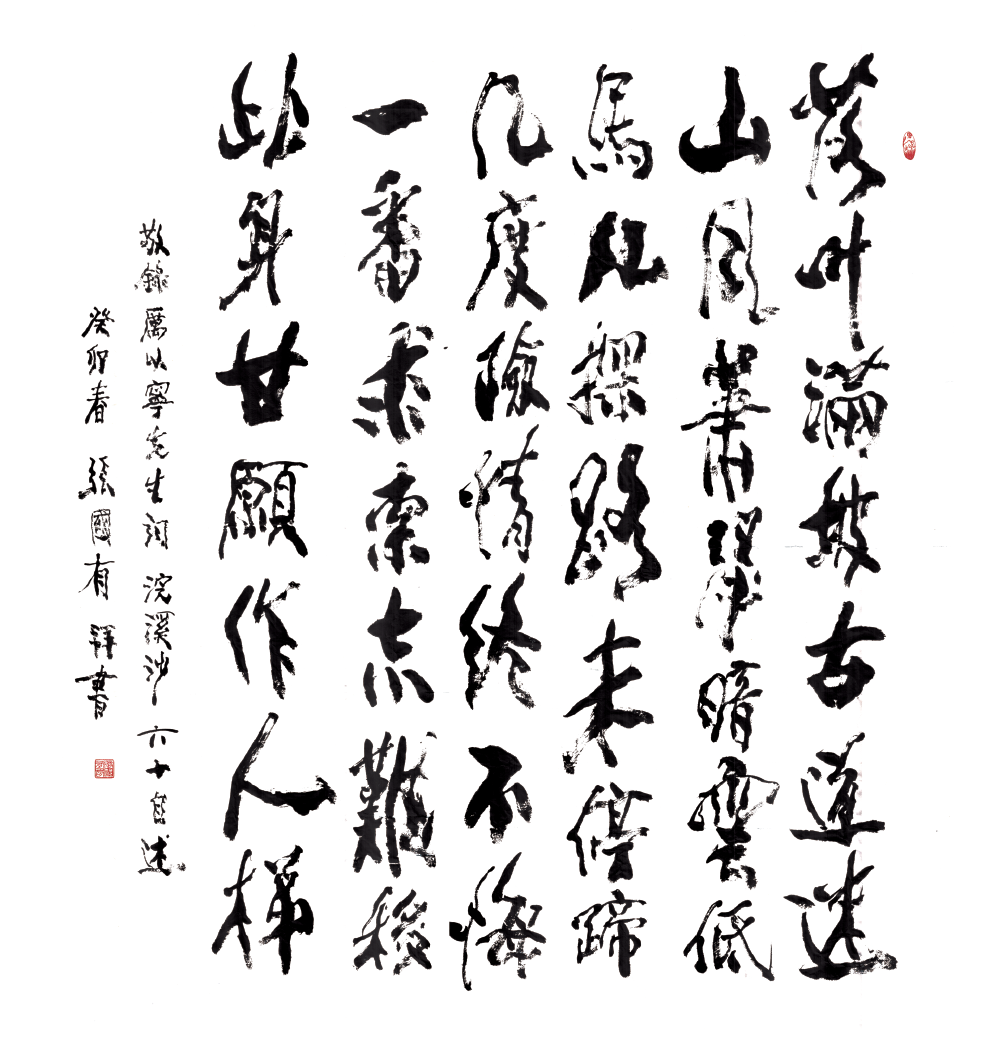 落叶滿坡古道迷
山風蕭瑟暗雲低
馬兒探路未停蹄
几度險情終不悔
一番求索志難移
此身甘願作人梯
敬錄厲以寧先生詞 浣溪沙 六十自述
癸卯春 張國有 書